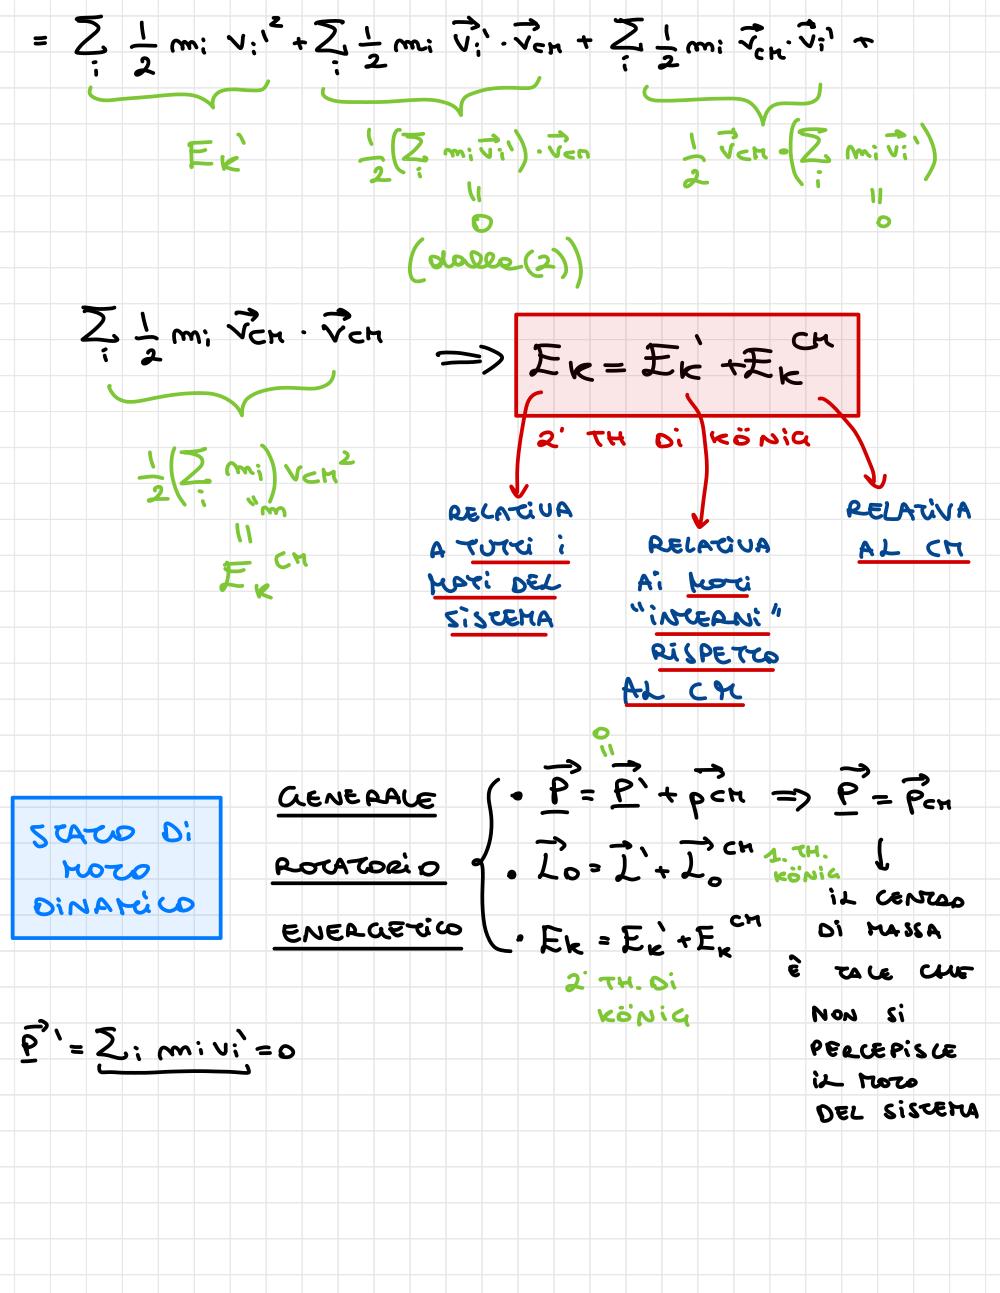 = Σ_i 1/2 m_i v_i'^2 + Σ_i 1/2 m_i v⃗_i' · v⃗_CM + Σ_i 1/2 m_i v⃗_CM · v⃗_i' +
E_K'
1/2 (Σ_i m_i v⃗_i') · v⃗_CM
1/2 v⃗_CM · (Σ_i m_i v⃗_i')
=
0
=
0
(dalla (2))
Σ_i 1/2 m_i v⃗_CM · v⃗_CM
⟹ E_K = E_K' + E_K^CM
2° TH DI KÖNIG
1/2 (Σ_i m_i) v_CM^2
" m
=
E_K^CM
RELATIVA
A TUTTI i
MOTI DEL
SISTEMA
RELATIVA
Ai MOTI
"INTERNI"
RISPETTO
AL CM
RELATIVA
AL CM
STATO DI
MOTO
DINAMICO
GENERALE
ROTATORIO
ENERGETICO
0
=
• P⃗ = P⃗' + p⃗_CM ⟹ P⃗ = p⃗_CM
• L⃗_O = L⃗' + L⃗_O^CM
1. TH.
KÖNIG
• E_K = E_K' + E_K^CM
2° TH. DI
KÖNIG
↓
IL CENTRO
DI MASSA
È TALE CHE
NON SI
PERCEPISCE
IL MOTO
DEL SISTEMA
P⃗' = Σ_i m_i v_i' = 0